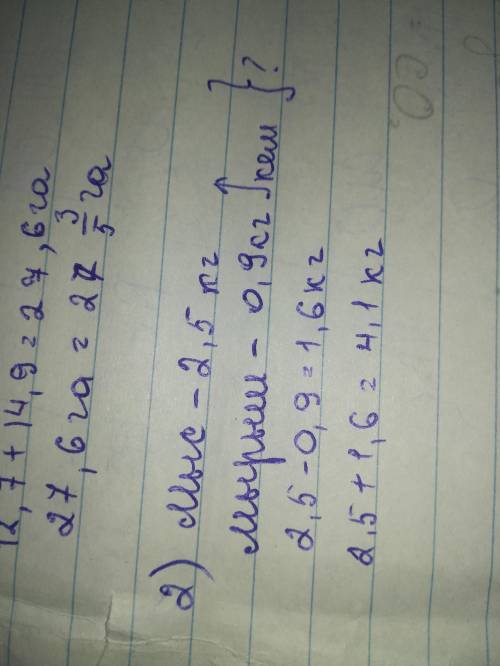 12,7 + 14,9 = 27,6 га
27,6 га = 27 3/5 га
2) Мыс – 2,5 кг
Мырыш – 0,9 кг кем } ?
2,5 - 0,9 = 1,6 кг
2,5 + 1,6 = 4,1 кг